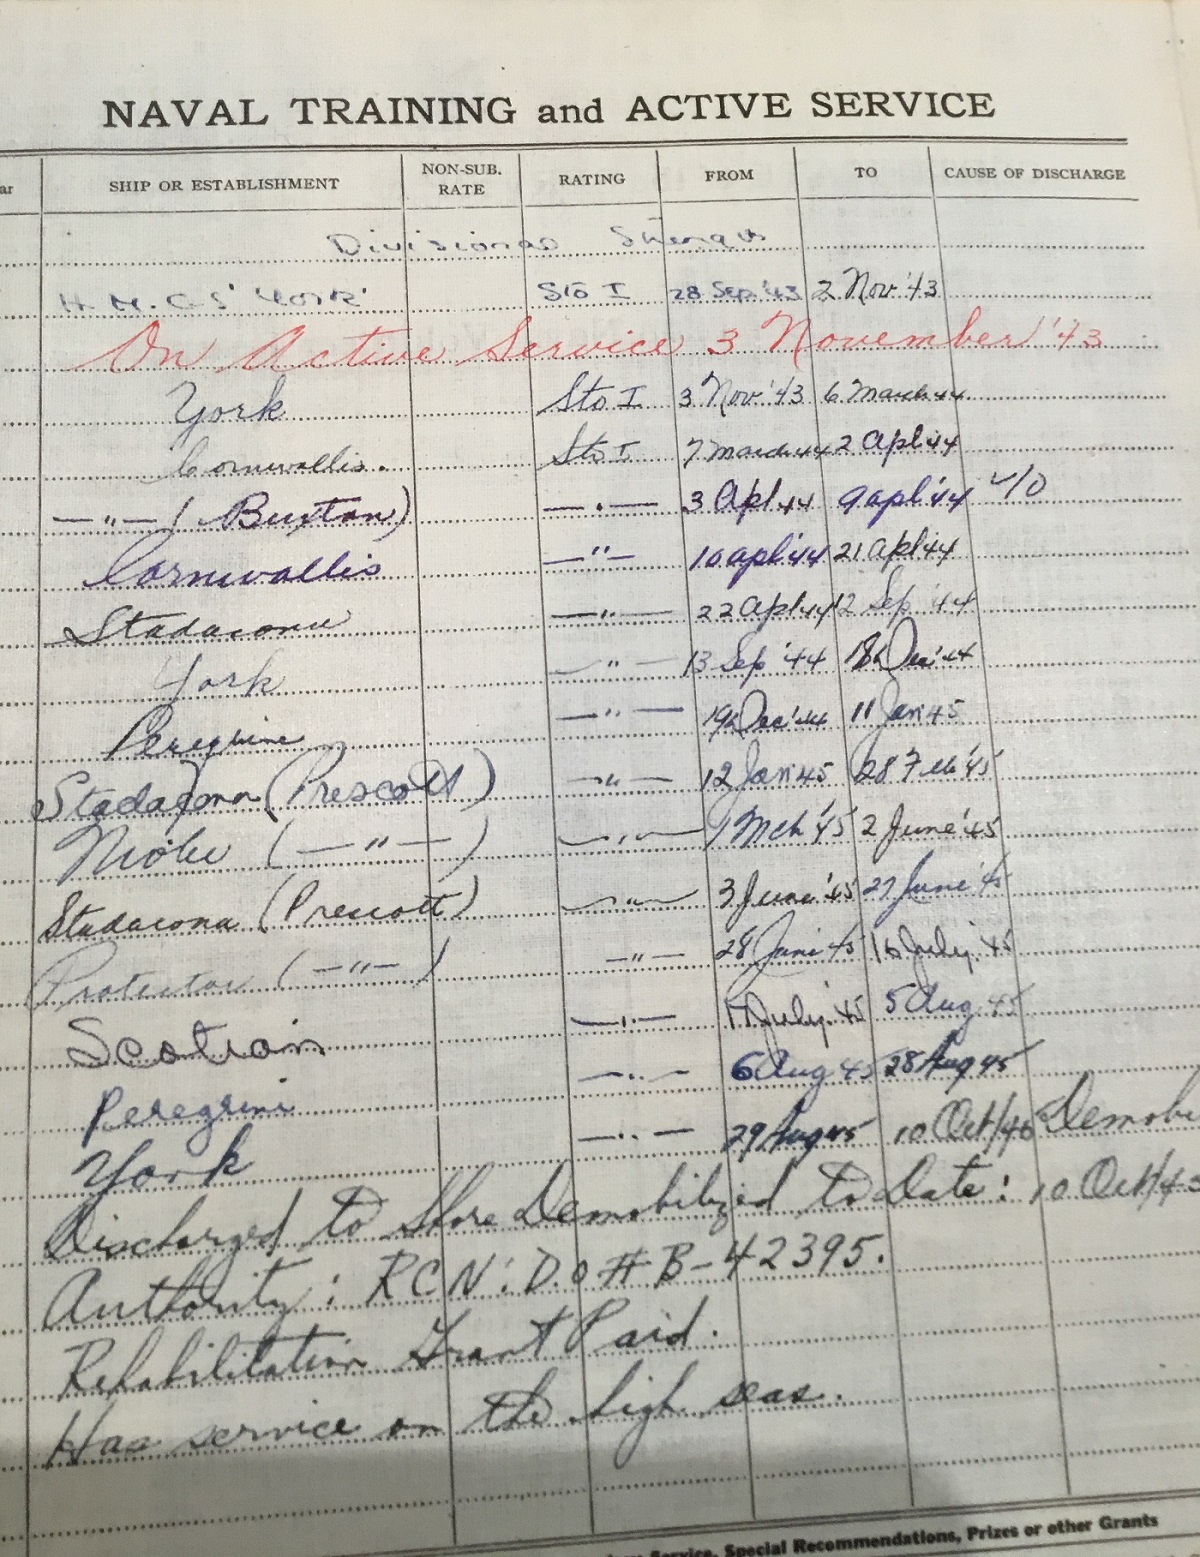 NAVAL TRAINING and ACTIVE SERVICE
ar SHIP OR ESTABLISHMENT NON-SUB. RATE RATING FROM TO CAUSE OF DISCHARGE
Divisional Strength
H.M.C.S' York' Sto I 28 Sep '43 2 Nov '43
On Active Service 3 November '43
York Sto I 3 Nov '43 6 March 44
Cornwallis. Sto I 7 March 44 2 Apl 44
—"— (Buxton) —"— 3 Apl 44 9 apl '44
Cornwallis —"— 10 apl '44 21 Apl 44
Stadacona —"— 22 Apl 44 12 Sep '44
York —"— 13 Sep '44 18 Dec '44
Peregrine —"— 19 Dec '44 11 Jan '45
Stadacona (Prescott) —"— 12 Jan '45 28 Feb '45
Niobe (—"—) —"— 1 Mch '45 2 June '45
Stadacona (Prescott) —"— 3 June '45 27 June '45
Protector (—"—) —"— 28 June 45 16 July '45
Scotian —"— 17 July '45 5 Aug 45
Peregrine —"— 6 Aug 45 28 Aug 45
York —"— 29 Aug 45 10 Oct/45 Demobi
Discharged to Shore Demobilized to Date: 10 Oct/45
Authority: RCN: D.O # B-42395.
Rehabilitation Grant Paid.
Has service on the high seas.
Service, Special Recommendations, Prizes or other Grants